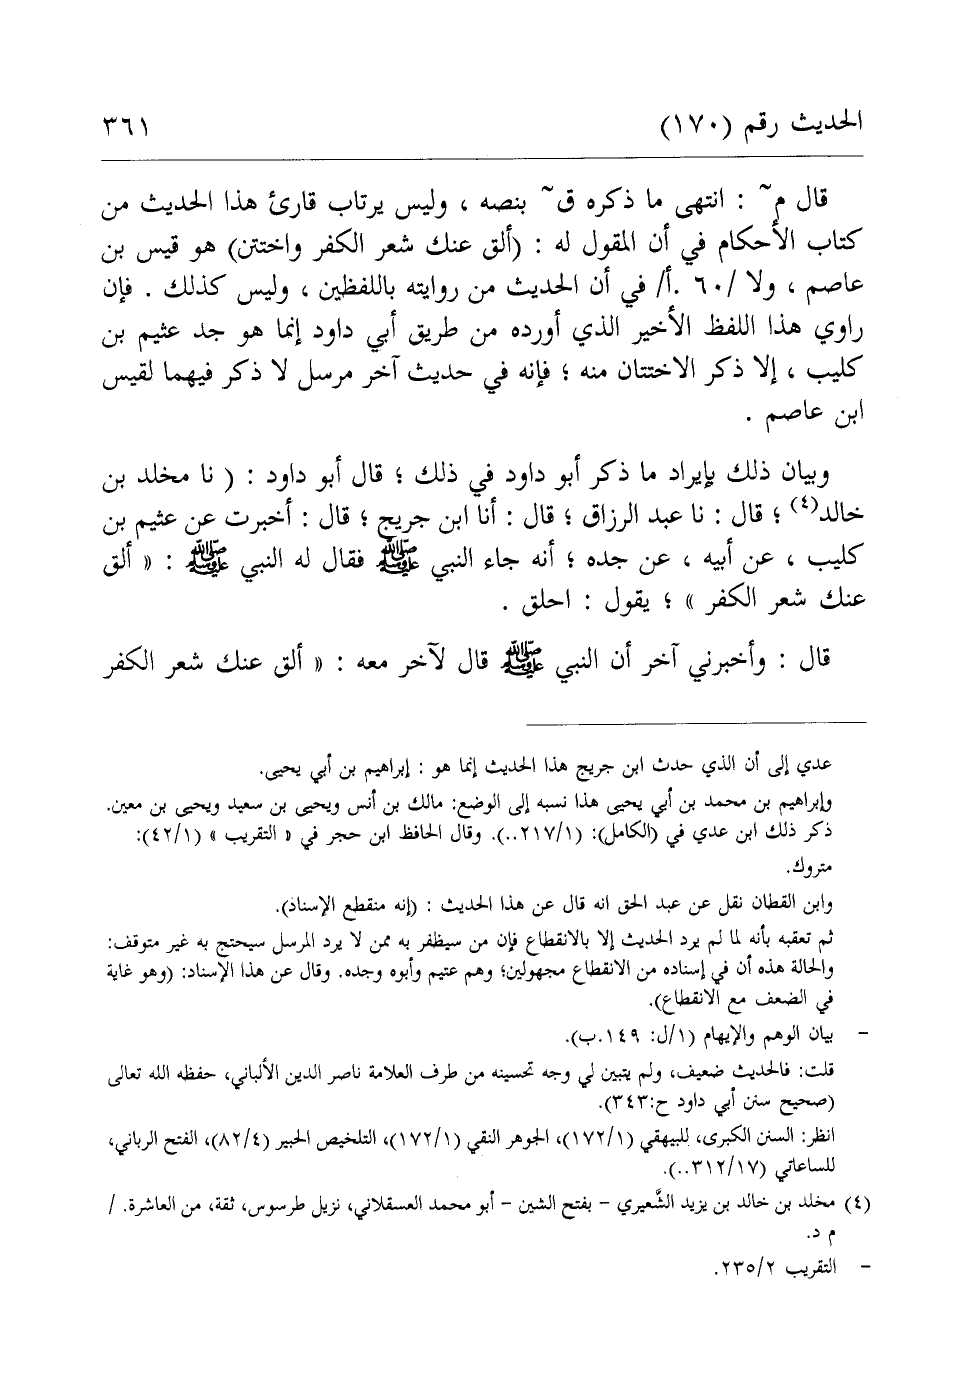 الحديث رقم (١٧٠) ٣٦١
قال م~ : انتهى ما ذكره ق~ بنصه ، وليس يرتاب قارئ هذا الحديث من
كتاب الأحكام في أن المقول له : (ألق عنك شعر الكفر واختتن) هو قيس بن
عاصم ، ولا /٦٠ .أ/ في أن الحديث من روايته باللفظين ، وليس كذلك . فإن
راوي هذا اللفظ الأخير الذي أورده من طريق أبي داود إنما هو جد عثيم بن
كليب ، إلا ذكر الاختتان منه ؛ فإنه في حديث آخر مرسل لا ذكر فيهما لقيس
ابن عاصم .
وبيان ذلك بإيراد ما ذكر أبو داود في ذلك ؛ قال أبو داود : ( نا مخلد بن
خالد(٤) ؛ قال : نا عبد الرزاق ؛ قال : أنا ابن جريج ؛ قال : أخبرت عن عثيم بن
كليب ، عن أبيه ، عن جده ؛ أنه جاء النبي ﷺ فقال له النبي ﷺ : « ألق
عنك شعر الكفر » ؛ يقول : احلق .
قال : وأخبرني آخر أن النبي ﷺ قال لآخر معه : « ألق عنك شعر الكفر
عدي إلى أن الذي حدث ابن جريج هذا الحديث إنما هو : إبراهيم بن أبي يحيى.
وإبراهيم بن محمد بن أبي يحيى هذا نسبه إلى الوضع: مالك بن أنس ويحيى بن سعيد ويحيى بن معين.
ذكر ذلك ابن عدي في (الكامل): (٢١٧/١..). وقال الحافظ ابن حجر في « التقريب » (٤٢/١):
متروك.
وابن القطان نقل عن عبد الحق انه قال عن هذا الحديث : (إنه منقطع الإسناد).
ثم تعقبه بأنه لما لم يرد الحديث إلا بالانقطاع فإن من سيظفر به ممن لا يرد المرسل سيحتج به غير متوقف:
والحالة هذه أن في إسناده من الانقطاع مجهولين؛ وهم عتيم وأبوه وجده. وقال عن هذا الإسناد: (وهو غاية
في الضعف مع الانقطاع).
- بيان الوهم والإيهام (١/ل: ١٤٩.ب).
قلت: فالحديث ضعيف، ولم يتبين لي وجه تحسينه من طرف العلامة ناصر الدين الألباني، حفظه الله تعالى
(صحيح سنن أبي داود ح:٣٤٣).
انظر: السنن الكبرى، للبيهقي (١٧٢/١)، الجوهر النقي (١٧٢/١)، التلخيص الحبير (٨٢/٤)، الفتح الرباني،
للساعاتي (٣١٢/١٧..).
(٤) مخلد بن خالد بن يزيد الشَّعيري - بفتح الشين - أبو محمد العسقلاني، نزيل طرسوس، ثقة، من العاشرة. /
م د.
- التقريب ٢٣٥/٢.